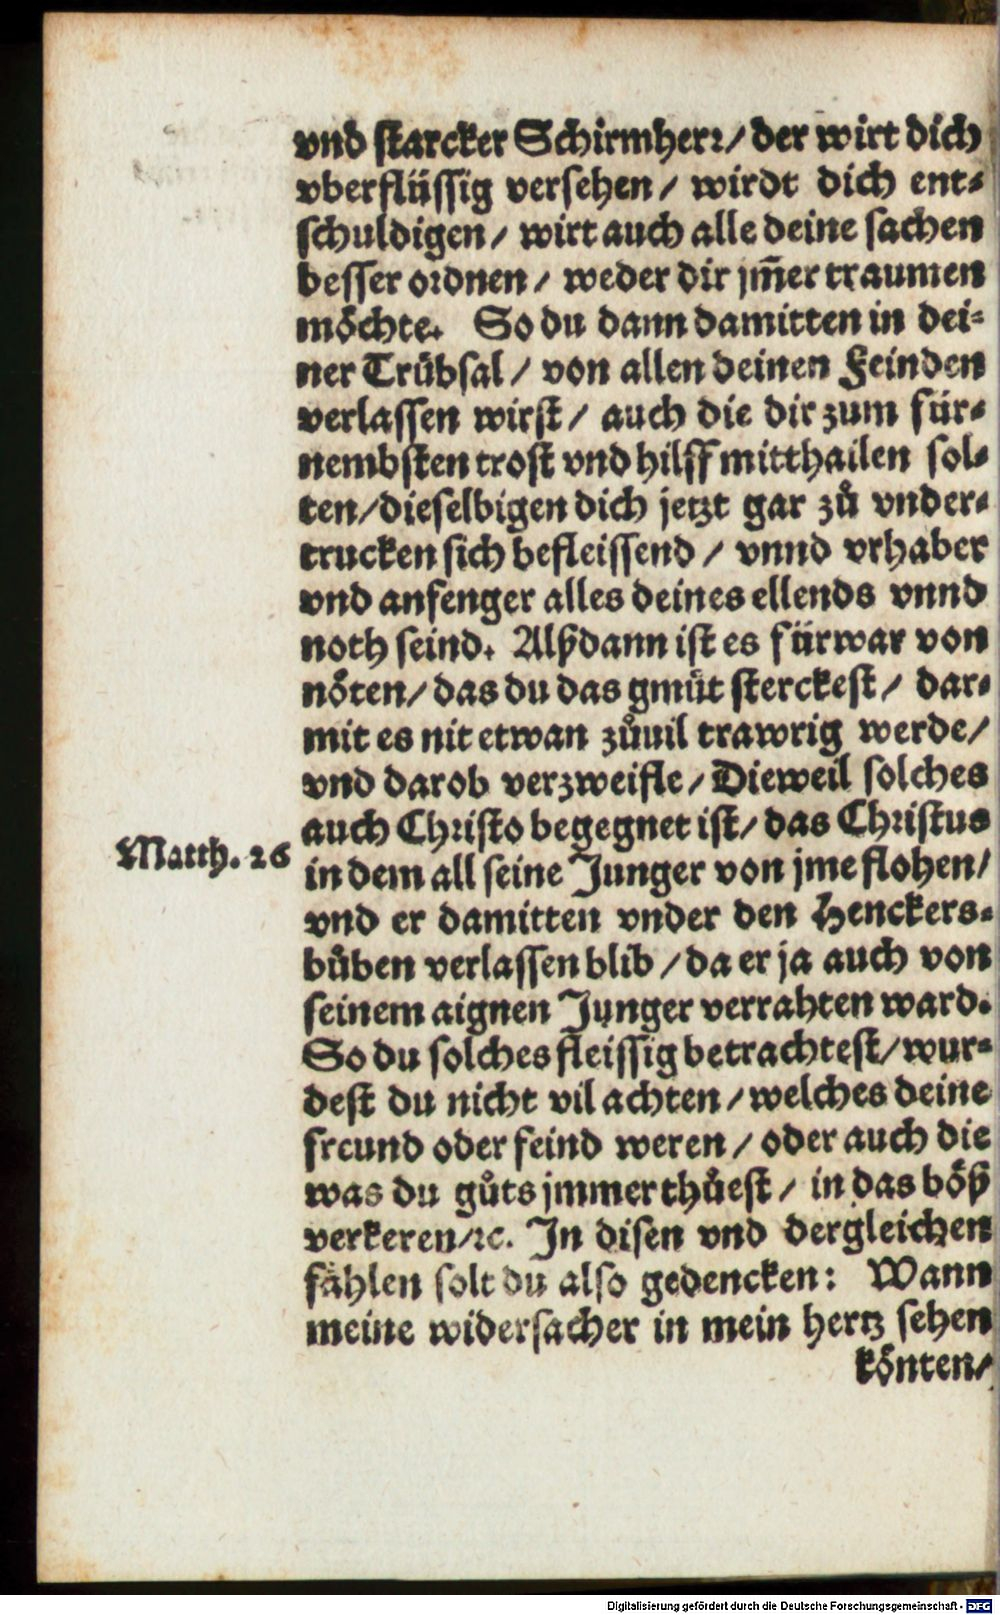 vnd starcker Schirmherr/ der wirt dich
vberflüssig versehen/ wirdt dich ent-
schuldigen/ wirt auch alle deine sachen
besser ordnen/ weder dir jm̄er traumen
möchte. So du dann damitten in dei-
ner Trübsal/ von allen deinen Feinden
verlassen wirst/ auch die dir zum für-
nembsten trost vnd hilff mitthailen sol-
ten/ dieselbigen dich jetzt gar zů vnder-
trucken sich befleissend/ vnnd vrhaber
vnd anfenger alles deines ellends vnnd
noth seind. Alßdann ist es fürwar von
nöten/ das du das gmüt sterckest/ dar-
mit es nit etwan zůuil trawrig werde/
vnd darob verzweifle/ Dieweil solches
auch Christo begegnet ist/ das Christus
Matth. 26
in dem all seine Junger von jme flohen/
vnd er damitten vnder den Henckers-
bůben verlassen blib/ da er ja auch von
seinem aignen Junger verrahten ward.
So du solches fleissig betrachtest/ wur-
dest du nicht vil achten/ welches deine
freund oder feind weren/ oder auch die
was du gůts jmmer thůest/ in das böß
verkeren/ ꝛc. In disen vnd dergleichen
fählen solt du also gedencken: Wann
meine widersacher in mein hertz sehen
könten/
Digitalisierung gefördert durch die Deutsche Forschungsgemeinschaft - DFG